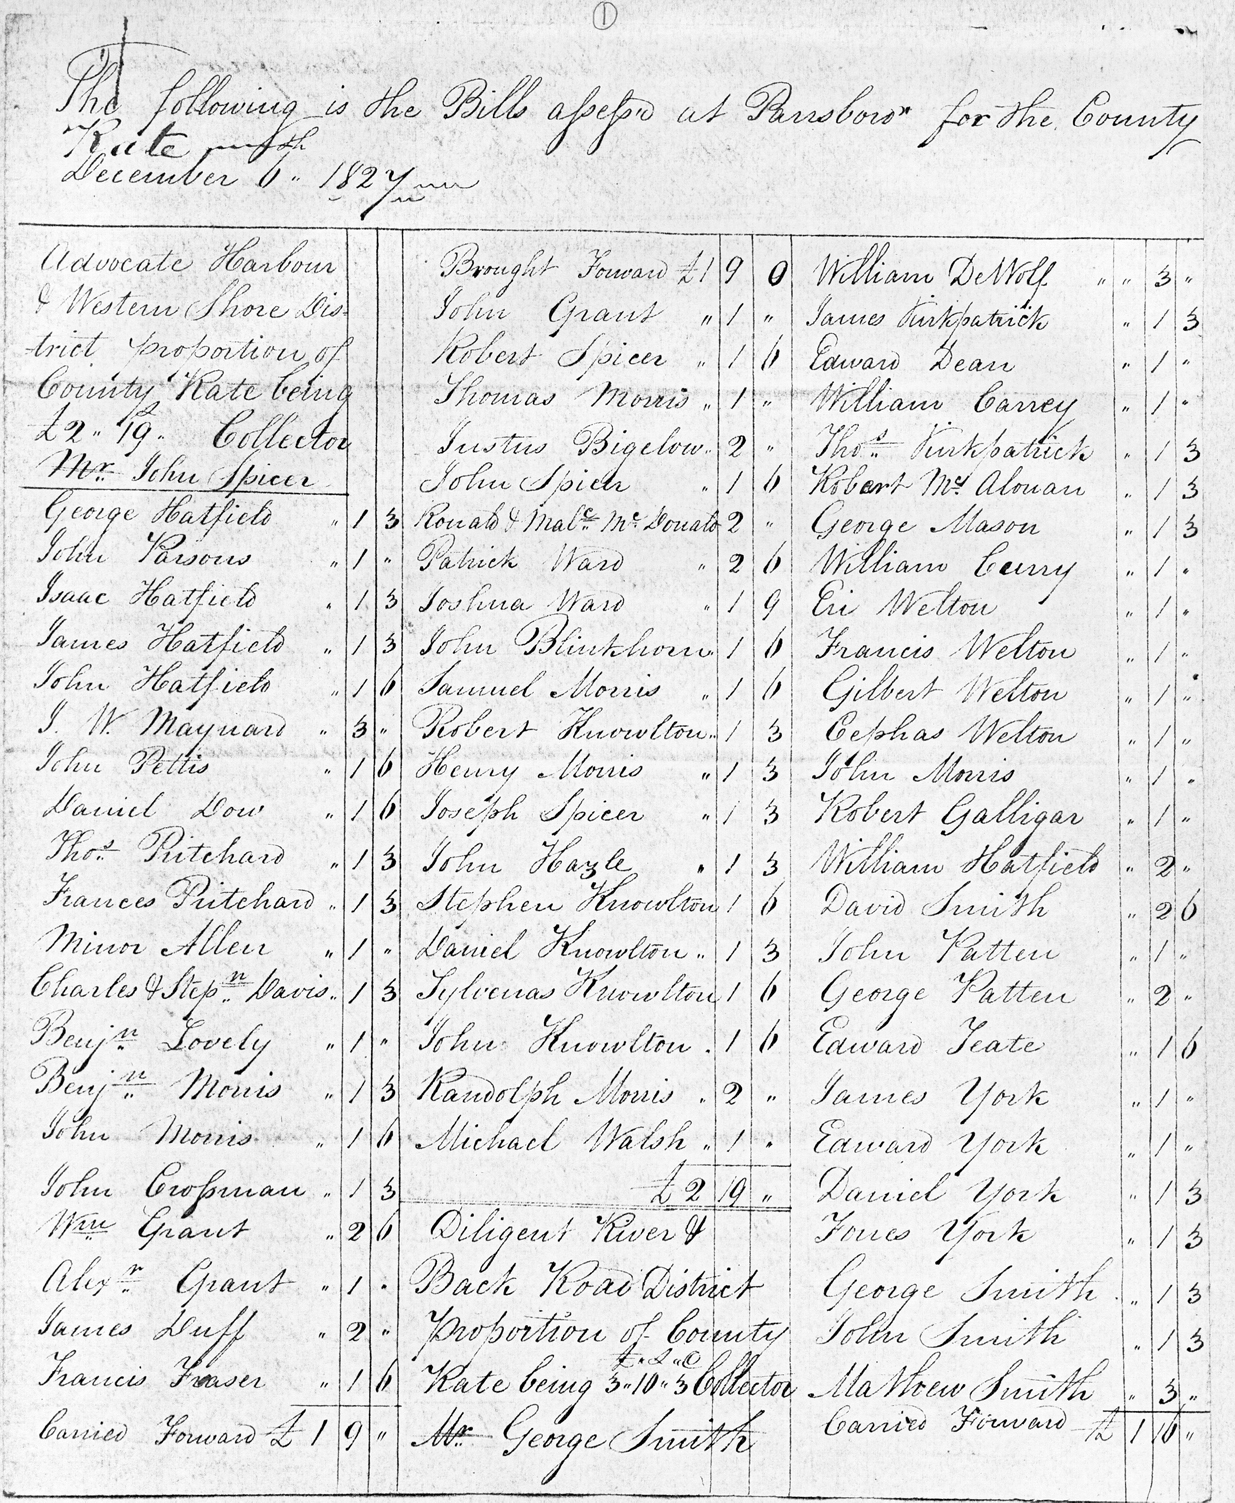 1
The following is the Bills assess'd at Parrsboro' for the County
Rate
December 6 " 1827
Advocate Harbour
& Western Shore Dis-
trict proportion of
County Rate being
£2 " 19 " Collector
Mr John Spicer
George Hatfield " 1 3
John Parsons " 1 "
Isaac Hatfield " 1 3
James Hatfield " 1 3
John Hatfield " 1 6
J. W. Maynard " 3 "
John Pettis " 1 6
Daniel Dow " 1 6
Thos Pritchard " 1 3
Frances Pritchard " 1 3
Minor Allen " 1 "
Charles & Stepn Davis " 1 3
Benjn Lovely " 1 "
Benjn Morris " 1 3
John Morris " 1 6
John Crossman " 1 3
Wm Grant " 2 6
Alexr Grant " 1 "
James Duff " 2 "
Francis Fraser " 1 6
Carried Forward £ 1 9 "
Brought Forward £1 9 0
John Grant " 1 "
Robert Spicer " 1 6
Thomas Morris " 1 "
Justus Bigelow " 2 "
John Spicer " 1 6
Ronald & Malc Mc Donald 2 "
Patrick Ward " 2 6
Joshua Ward " 1 9
John Blinkhorn " 1 6
Samuel Morris " 1 6
Robert Knowlton " 1 3
Henry Morris " 1 3
Joseph Spicer " 1 3
John Hazle " 1 3
Stephen Knowlton 1 6
Daniel Knowlton " 1 3
Sylvenas Knowlton 1 6
John Knowlton . 1 6
Randolph Morris " 2 "
Michael Walsh " 1 "
£ 2 19 "
Diligent River &
Back Road District
Proportion of County
Rate being 3 " 10 " 3 Collector
Mr George Smith
William DeWolf " " 3 "
James Kirkpatrick " 1 3
Edward Dean " 1 "
William Carrey " 1 "
Thos Kirkpatrick " 1 3
Robert Mc Alonan " 1 3
George Mason " 1 3
William Curry " 1 "
Eri Welton " 1 "
Francis Welton " 1 "
Gilbert Welton " 1 "
Cephas Welton " 1 "
John Morris " 1 "
Robert Galligar " 1 "
William Hatfield " 2 "
David Smith " 2 6
John Patten " 1 "
George Patten " 2 "
Edward Teate " 1 6
James York " 1 "
Edward York " 1 "
Daniel York " 1 3
Jones York " 1 3
George Smith " 1 3
John Smith " 1 3
Mathew Smith " 3 "
Carried Forward £ 1 16 "